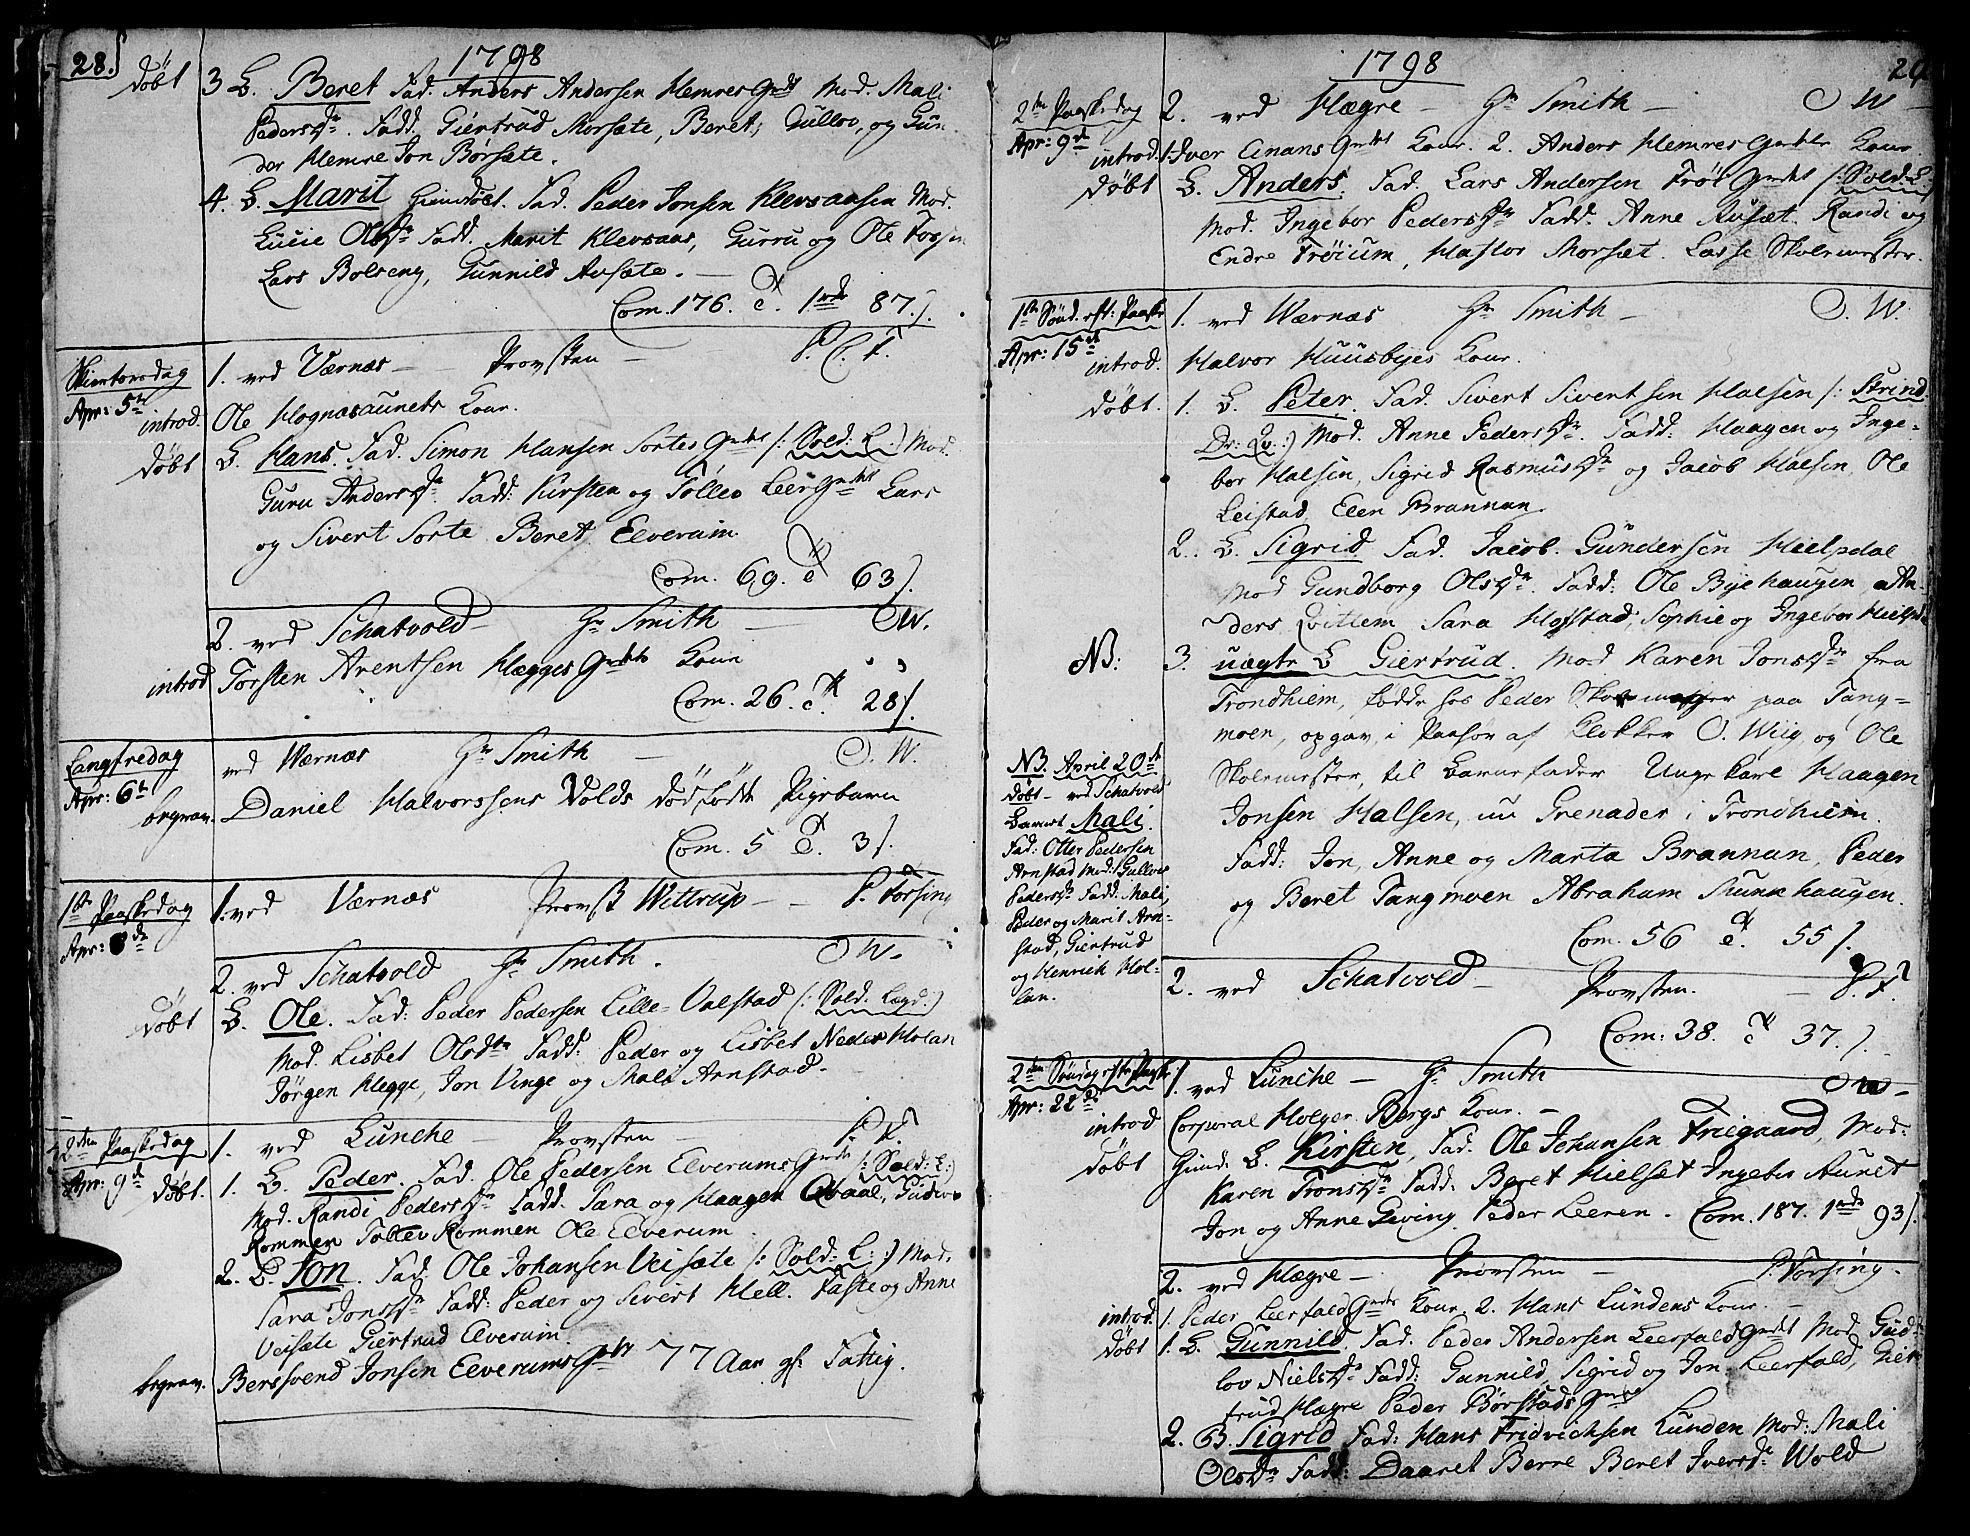 28.
1798
døbt 3 B. Beret Fad. Anders Andersen Hemres Gods Mod. Mali
Peders D. Fadd. Giertrud Morsæte, Beret, Gullov, og Gun-
der Hemre Jon Børsæte.
4. B. Marit Fad. Peder Jonsen Klevsaasen Mod.
Lucie Ols D. Fadd. Marit Klevsaas, Gurru og Ole Fosse
Lars Bolseng, Gunnild Aufæte.
Com. 176. 1 87.
Skiertorsdag 1. ved Værnæs - Provsten - P. C. F.
Apr: 5
introd. Ole Hognasaunets Kone.
døbt B. Hans. Fad. Simon Hansen Sortes (: Sold: L:) Mod.
Guru Anders D. Fadd: Kirsten og Tollev Leer Lars
og Sivert Sorte Beret Elverum
Com. 69. e 63
2. ved Schatvold - Smith - O W.
introd Torsten Arentsen Hægges Kone
Com. 26. e 28
Langfredag ved Wærnæs Smith - O. W.
Apr: 6
begrav. Daniel Halvorssens Volds dødfødte Pigebarn
Com. 5 e. 3
1 Paaskedag 1. ved Værnæs Provst Wittrup - P. Forsing
Apr: 8
2. ved Schatvold Smith. O W.
døbt B. Ole. Fad: Peder Pedersen Lille-Valstad (: Sold: Lægd:)
Mod. Lisbet Ols Fadd: Peder og Lisbet Neder Holan
Jørgen Hegge, Jon Vinge og Mali Arnstad.
2den Paaskedag 1. ved Lunche - Provsten - P. F.
Apr: 9 døbt. 1. B. Peder. Fad. Ole Pedersen Elverums (: Sold: L:)
Mod. Randi Peders D. Fadd. Sara og Haagen
Kommen Tollev Kommen Ole Elverum
2. B. Jon. Fad. Ole Johansen Veisæte (: Sold: L: :) Mod.
Sara Jons D Fadd: Peder og Sivert Hell. Faste og Anne
Veisæte Giertrud Elverum.
begrav. Berssvend Jonsen Elverums 77 Aar gl: Fattig.
1798
29
2 Paaskedag 2. ved Hægre - Smith - O W
Apr: 9
introd. 1. Iver Kone. 2. Anders Hemres Kone
døbt B. Anders. Fad. Lars Andersen (: Sold: L:)
Mod. Ingebor Peders D. Fadd. Anne Aufæt. Randi og
Endre Frøium, Haftor Morsæt. Lasse Skolemester.
1 Sønd. eft: Paaske 1. ved Wærnæs Smith - O. W.
Apr: 15
introd. Halvor Huusbyes Kone.
døbt. 1. B. Peter. Fad. Sivert Sivertsen Halsen (: Strind.
Dr: :) Mod. Anne Peders D. Fadd: Haagen og Inge-
bor Halsen, Sigrid Rasmus D og Jacob Halsen, Ole
Leistad Elen Brannan
2. B. Sigrid Fad. Jacob Gundersen Hielpdal
Mod Gundborg Ols D. Fadd: Ole Byehaugen, An-
ders Qvittem Sara Hofstad, Sophie og Ingebor
NB: 3. uægte B Giertrud. Mod Karen Jons D fra
Trondhiem, født hos Peder paa Tang-
moen, opgav, i Paasør af Klokker O. Wiig og Ole
Skolemester, til Barnefader Ungekarl Haagen
Jonsen Halsen, nu Grenader i Trondhiem.
Fadd: Jon, Anne og Marta Brannan, Peder
og Beret Tangmoen Abraham Munkhaugen.
Com. 56 e. 55
NB. April 20
døbt - ved Schatvold
Barnet Mali.
Fad: Otter Pedersen
Arnstad Mod: Gullov
Peders D Fadd. Mali,
Peder og Marit Arn-
stad, Giertrud
og Henrich Hol-
lan.
2. ved Schatvold - Provsten. - P. F.
Com: 38. e 37.
2den Søndag eft: Paaske 1. ved Lunche - Smith O W -
Apr: 22
introd Corporal Holger Bergs Kone. -
døbt B. Kirsten, Fad. Ole Johansen Friegaard, Mod:
Karen Trons D Fadd. Beret Hielset Ingebor Aunet
Jon og Anne Geving. Peder Leeren. Com. 187. 1 93
2. ved Hægre - Provsten - P. Forsing.
introd. 1. Peder Leerfald Kone. 2. Hans Lundens Kone. -
døbt 1. B. Gunnild. Fad: Peder Andersen Leerfald Mod Gud-
lov Niels D Fadd: Gunnild, Sigrid og Jon Leerfald, Gier-
trud Hægre Peder Børstads
2. B. Sigrid Fad: Hans Fridrichsen Lunden Mod: Mali
Ols D Fadd: Daaret Berre Beret Ivers D: Wold